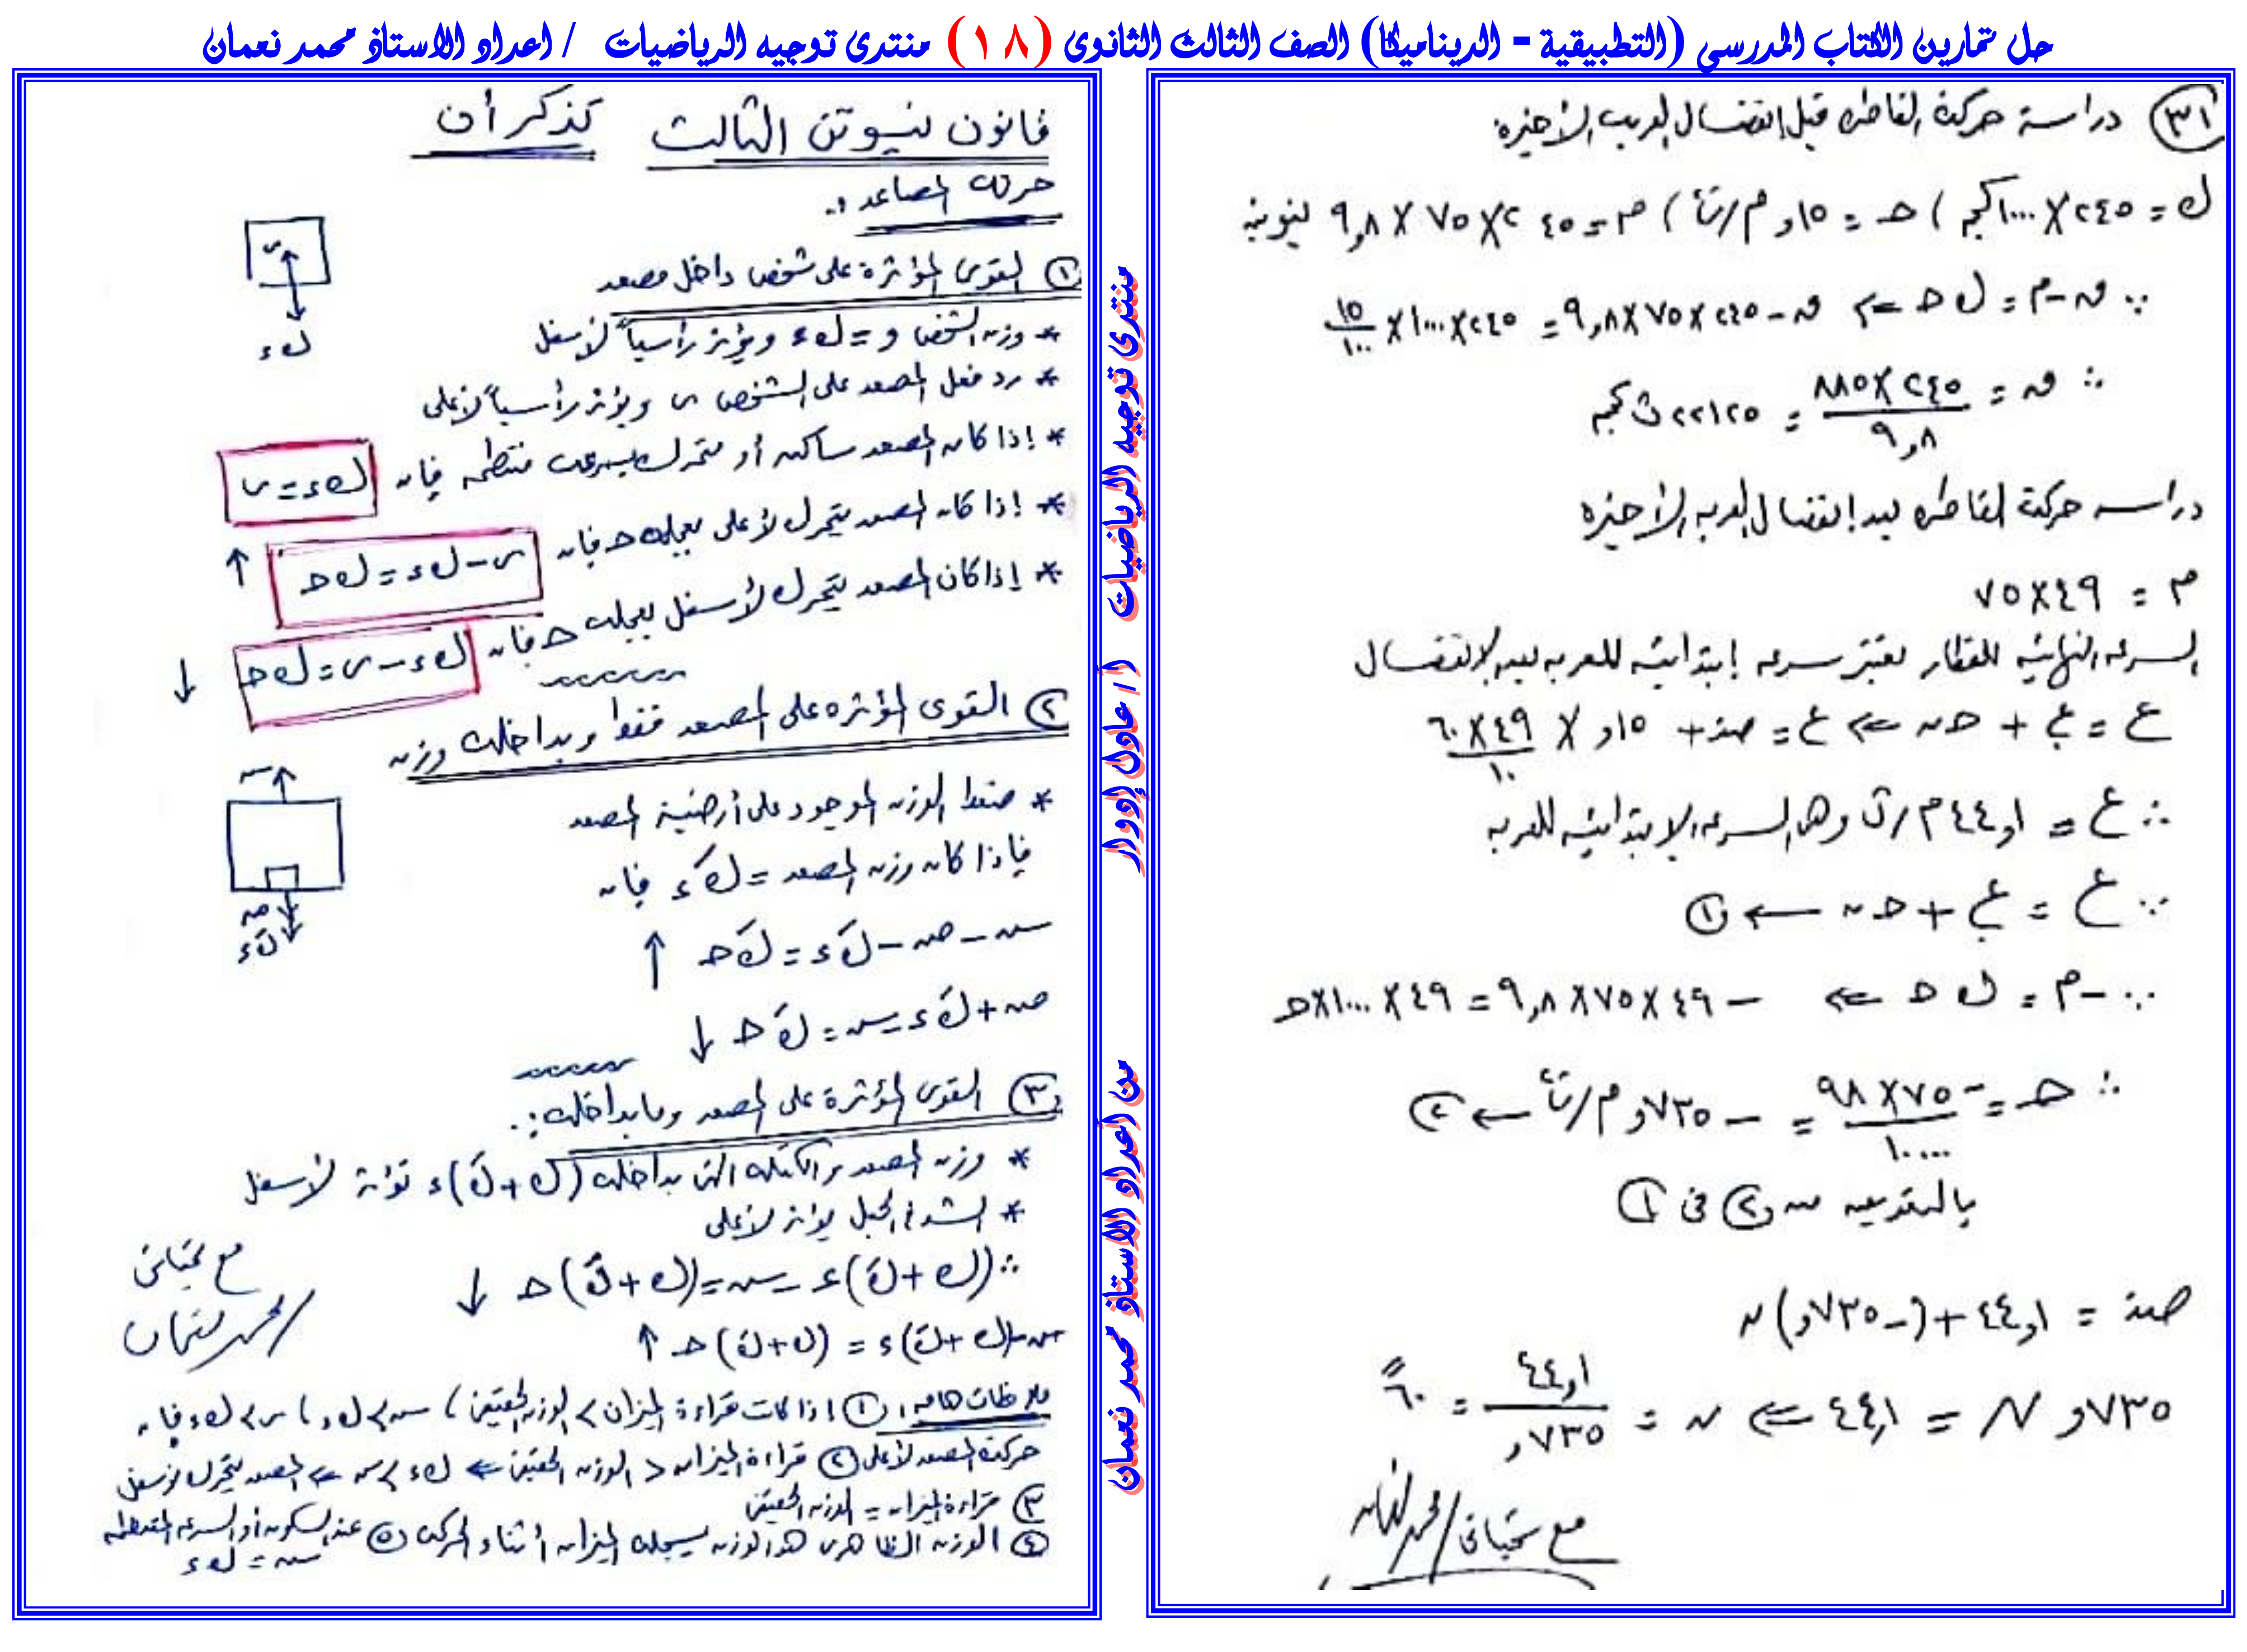 حل تمارين الكتاب المدرسي (التطبيقية - الديناميكا) الصف الثالث الثانوى (١٨) منتدى توجيه الرياضيات / اعداد الاستاذ محمد نعمان
٣١ دراسة حركة القاطره قبل إنفصال العربه الأخيره
ك = ٢٤٥ × ١٠٠٠ كجم ، حـ = ١٥و م/ث٢ ، م = ٢٤٥ × ٧٥ × ٩,٨ نيوتن
∵ ق - م = ك حـ ⇐ ق - ٢٤٥ × ٧٥ × ٩,٨ = ٢٤٥ × ١٠٠٠ × ١٥/١٠٠
∴ ق = ٢٤٥ × ٨٨٥ / ٩,٨ = ٢٢١٢٥ ث كجم
دراسه حركة القاطره بعد إنفصال العربه الأخيره
م = ٤٩ × ٧٥
السرعه النهائيه للقطار تعتبر سرعه إبتدائيه للعربه بعد الإنفصال
ع = ع. + حـ ن ⇐ ع = صفر + ١٥و × ٤٩ × ٦٠ / ١٠
∴ ع = ٤٤,١ م/ث وهى السرعه الإبتدائيه للعربه
∵ ع = ع. + حـ ن ← ١
∵ - م = ك حـ ⇐ - ٤٩ × ٧٥ × ٩,٨ = ٤٩ × ١٠٠٠ × حـ
∴ حـ = - ٧٥ × ٩٨ / ١٠٠٠٠ = - ٧٣٥و م/ث٢ ← ٢
بالتعويض من ٢ فى ١
صفر = ٤٤,١ + (- ٧٣٥و) ن
٧٣٥و ن = ٤٤,١ ⇐ ن = ٤٤,١ / ٧٣٥و = ٦٠
مع تحياتى / محمد نعمان
منتدى توجيه الرياضيات
أ / عادل إدوار
من اعداد الاستاذ محمد نعمان
قانون نيوتن الثالث تذكر أن
حركة المصاعد :.
١ القوى المؤثرة على شخص داخل مصعد
* وزن الشخص و = ك ء ويؤثر رأسياً لأسفل
* رد فعل المصعد على الشخص ر ويؤثر رأسياً لأعلى
* إذا كان المصعد ساكن أو متحرك بسرعه منتظمه فإن ك ء = ر
* إذا كان المصعد يتحرك لأعلى بعجله حـ فإن ر - ك ء = ك حـ ↑
* إذا كان المصعد يتحرك لأسفل بعجله حـ فإن ك ء - ر = ك حـ ↓
٢ القوى المؤثره على المصعد فقط وبداخله وزن
* ضغط الوزن الموجود على أرضية المصعد
فإذا كان وزن المصعد = كَ ء فإن
شـ - ضـ - كَ ء = كَ حـ ↑
ضـ + كَ ء - شـ = كَ حـ ↓
٣ القوى المؤثرة على المصعد وما بداخله :.
* وزن المصعد والكتله التى بداخله (ك + كَ) ء تؤثر لأسفل
* الشد فى الحبل يؤثر لأعلى
∴ (ك + كَ) ء - شـ = (ك + كَ) حـ ↓
شـ - (ك + كَ) ء = (ك + كَ) حـ ↑
مع تحياتى
/ محمد نعمان
ملاحظات هامه : ١ إذا كانت قراءة الميزان > الوزن الحقيقى ، شـ > ك ء ، ر > ك ء فإن
حركة المصعد لأعلى ٢ قراءة الميزان < الوزن الحقيقى ⇐ ك ء > شـ ⇐ المصعد يتحرك لأسفل
٣ قراءة الميزان = الوزن الحقيقى
٤ الوزن الظاهرى هو الوزن يسجله الميزان أثناء الحركه ٥ عند السكون أو السرعه المنتظمه
شـ = ك ء